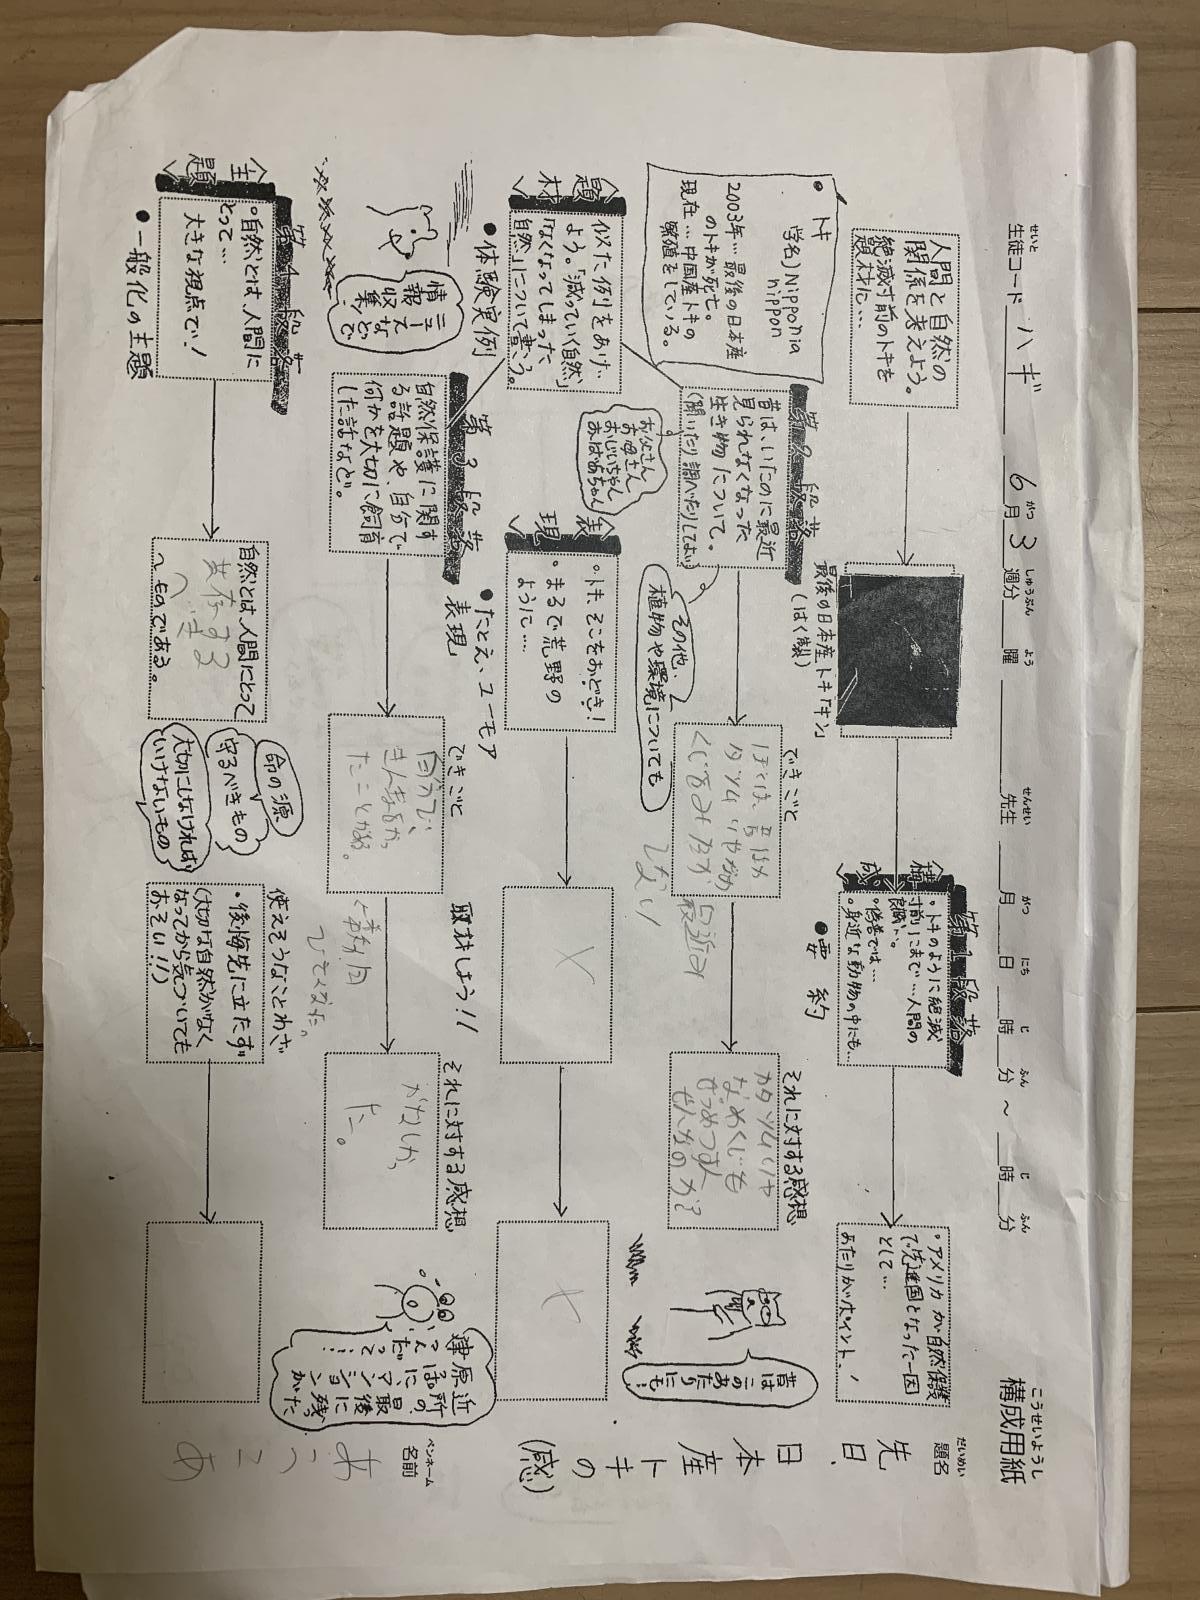 こうせいようし
構成用紙
せいと
生徒コード ハギ
がつ しゅうぶん よう
6月3週分 曜
せんせい
先生
がつ にち じ ふん じ ふん
月 日 時 分 ～ 時 分
だいめい
題名
先日、
日本産トキの
(感)
ペンネーム
名前
人間と自然の
関係を考えよう。
絶滅寸前のトキを
題材に…
最後の日本産トキ「キン」
(はく製)
第1段落
構成
・トキのように絶滅
寸前にまで…人間の
・偕老では…
・身近な動物の中にも…
●要約
・アメリカが自然保護
で先進国となった一因
として…
あたりがポイント、
・トキ
学名)Nipponia
nippon
2003年…最後の日本産
のトキが死亡。
現在…中国産トキの
繁殖をしている。
第2段落
昔は、いたのに最近
見られなくなった
生き物について。
(聞いたり調べたりしてよい)
お父さん
お母さん
おじいちゃん
おばあちゃん
その他、
植物や環境についても
できごと
ぼくは、昔はよ
最近み
しない
それに対する感想
カタツムリや
なめくじも
ぜつめつすん
ぜんなのか?
昔は
このあ
たりにも…
題材
似た例りをあげ、
よう。「減っていく自然」
「なくなってしまった
自然」について書こう。
●体験実例
表現
・トキ、そこをおどき!
・まるで荒野の
ように…
●たとえ、ユーモア
表現
ニュー
スなどで
情報
収集
第3段落
自然保護に関す
る話題や、自分で
何かを大切に飼育
した話など。
できごと
自分で、
たことがある。
取材しよう!!
それに対する感想
かなしかっ
た。
近所の、最後に残った
原っぱに、マンションが
建つんだって…
主題
第4段落
・自然とは、人間に
とって…
大きな視点で!
●一般化の主題
自然とは、人間にとって
共存する
～ものである。
命の源
守るべきもの
大切にしなければ
いけないもの
使えそうなことわざ
・後悔先に立たず
(大切な自然がなく
なってから気づいても
おそい!!)